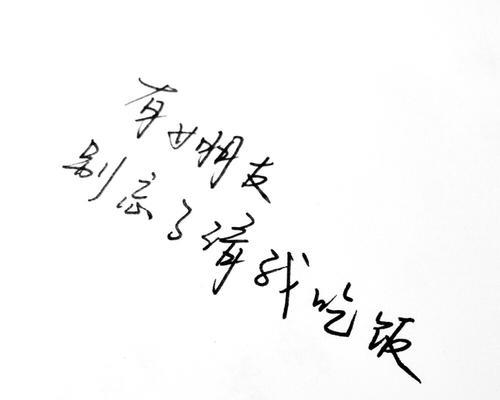 有女朋友
别忘了请我吃饭